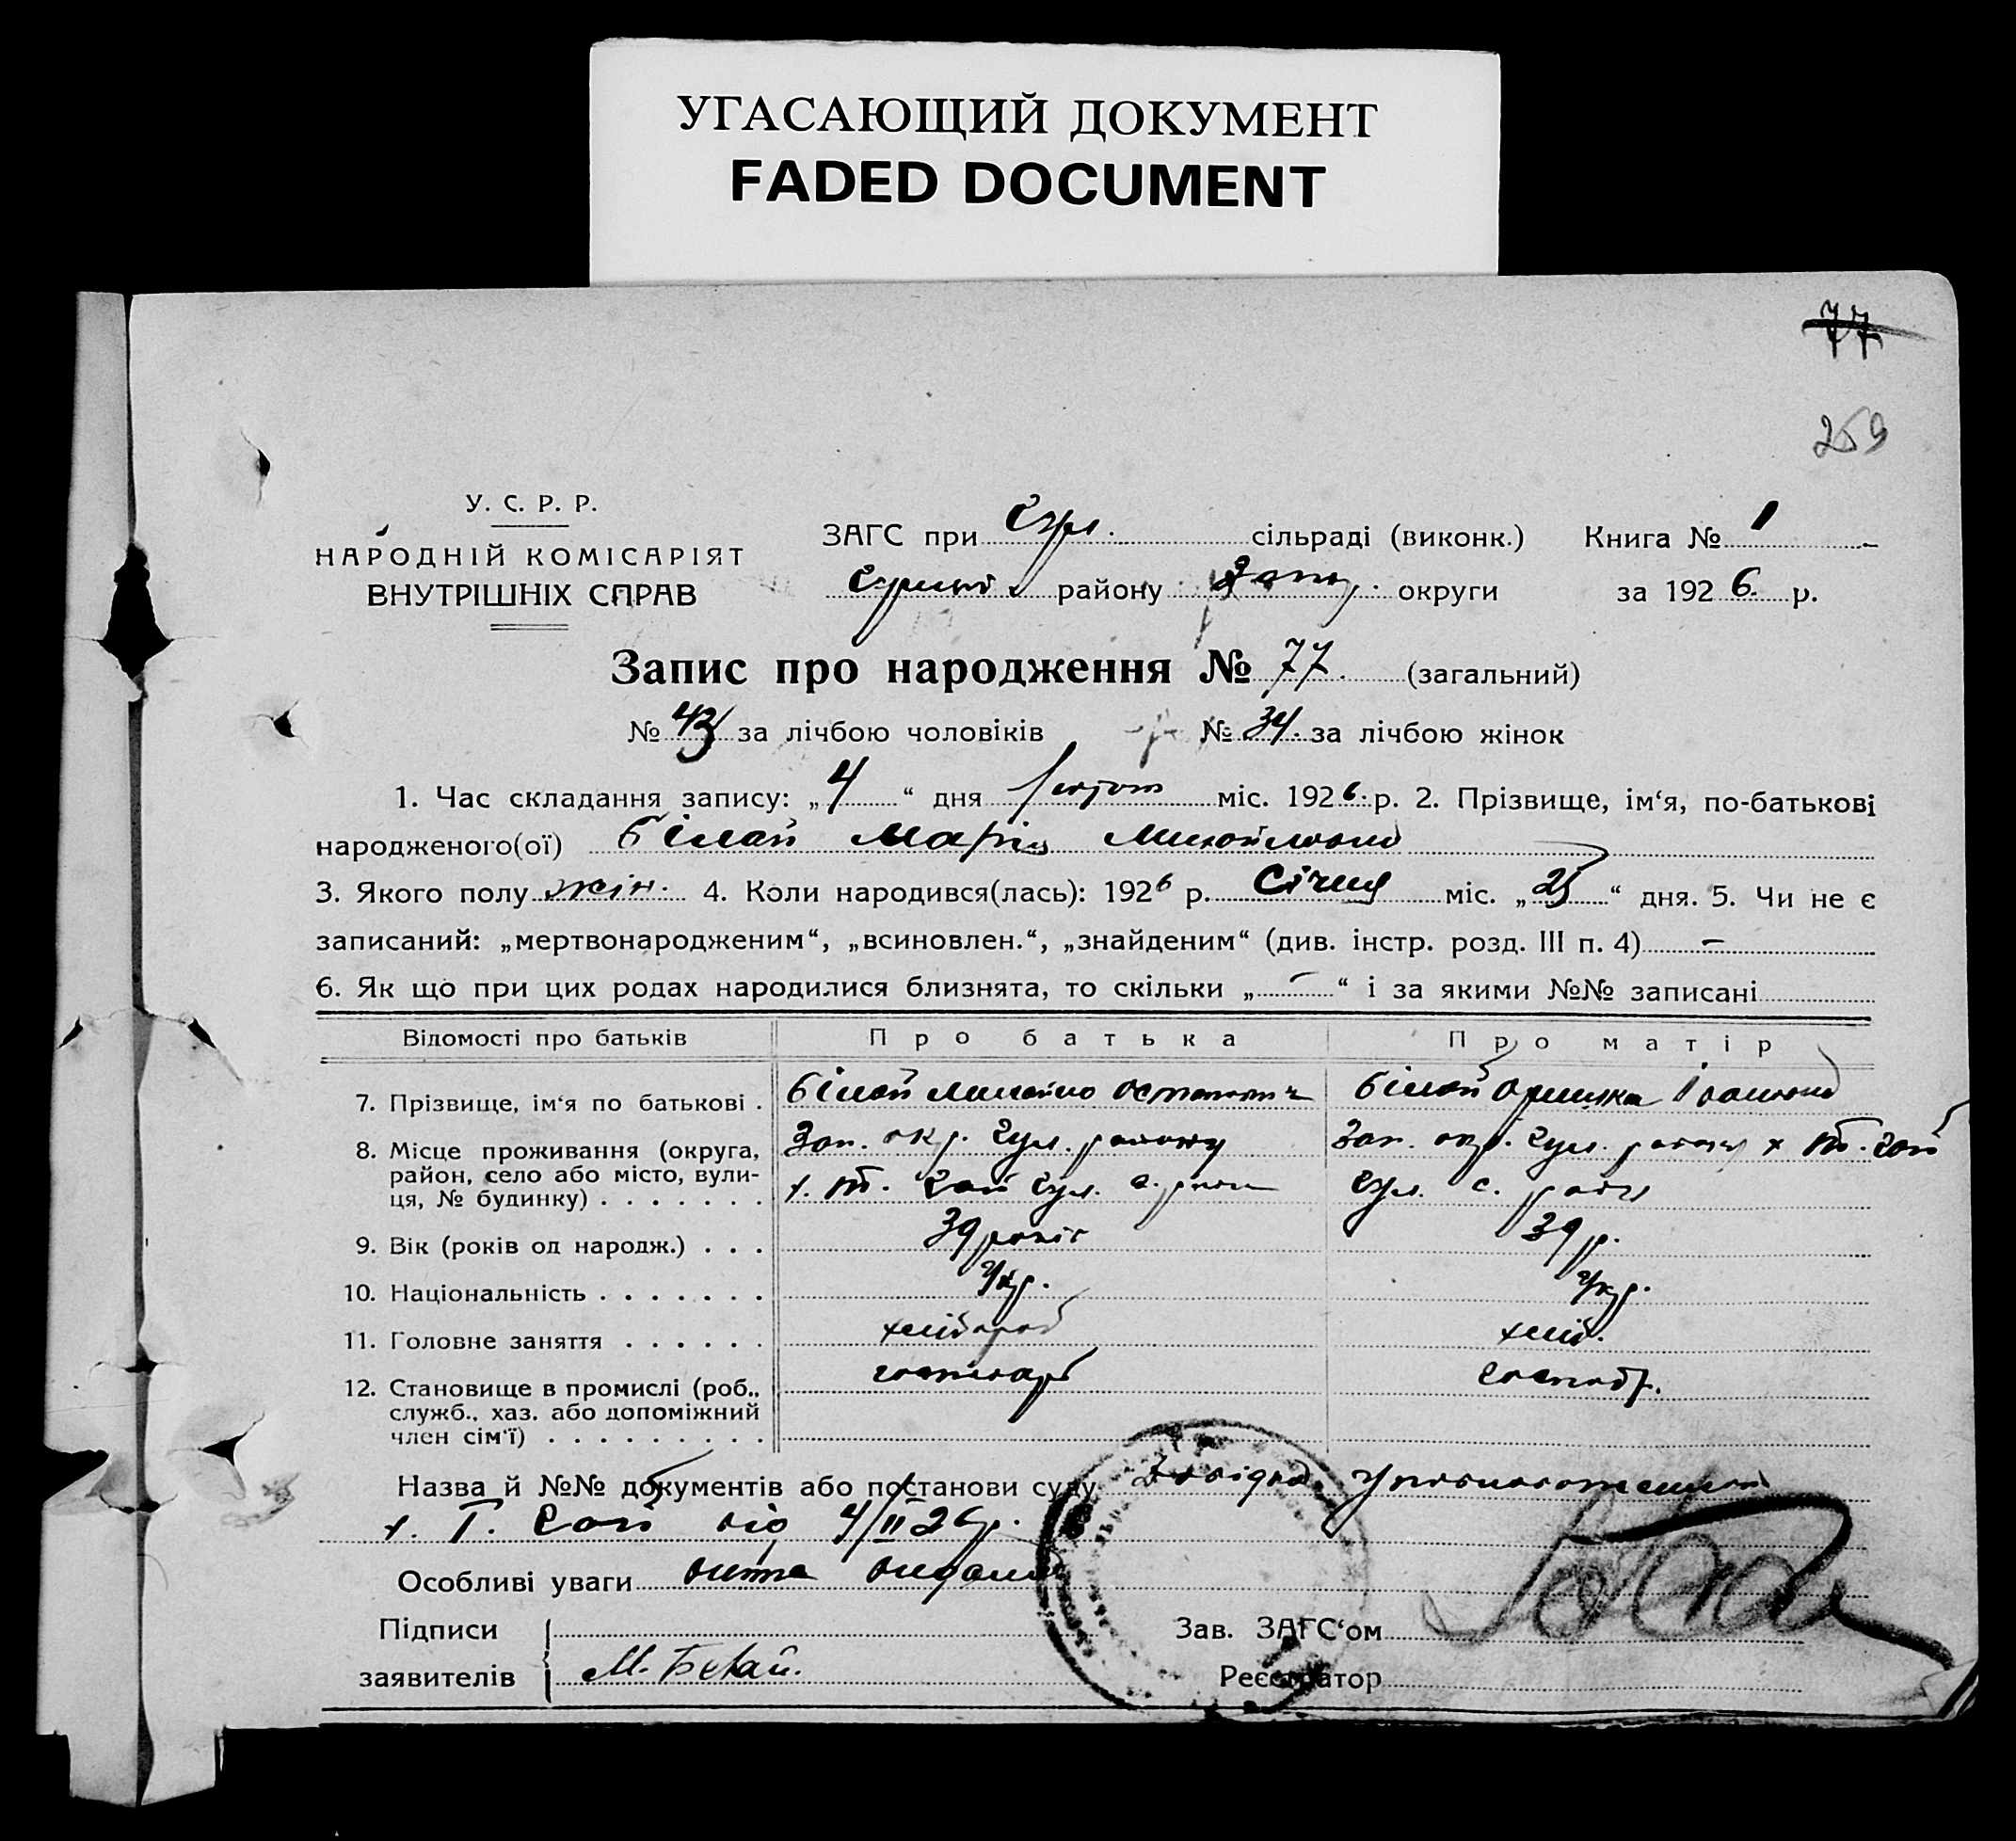 УГАСАЮЩИЙ ДОКУМЕНТ
FADED DOCUMENT
77
259
У. С. Р. Р.
НАРОДНІЙ КОМІСАРІЯТ
ВНУТРІШНІХ СПРАВ
ЗАГС при Гул. сільраді (виконк.)
району Запор. округи
Книга № 1
за 1926 р.
Запис про народження № 77. (загальний)
№ 43 за лічбою чоловіків № 34. за лічбою жінок
1. Час складання запису: „4“ дня лютого міс. 1926 р. 2. Прізвище, ім‘я, по-батькові
народженого(ої) Білай Марія Михайловна
3. Якого полу жін. 4. Коли народився(лась): 1926 р. Січня міс. „25“ дня. 5. Чи не є
записаний: „мертвонародженим“, „всиновлен.“, „знайденим“ (див. інстр. розд. III п. 4) –
6. Як що при цих родах народилися близнята, то скільки „–“ і за якими №№ записані
Відомості про батьків Про батька Про матір
7. Прізвище, ім‘я по батькові . Білай Михайло Остапович Білай Оришка Івановна
8. Місце проживання (округа, Зап. окр. Гул. району Зап. окр. Гул. району х. Т. Гай
район, село або місто, вули- х. Т. Гай Гул. с. ради Гул. с. ради
ця, № будинку) . . . . . . .
9. Вік (років од народж.) . . . 39 років 39 р.
10. Національність . . . . . . . Укр. Укр.
11. Головне заняття . . . . . . хлібороб хліб.
12. Становище в промислі (роб., господар господ.
служб., хаз. або допоміжний
член сім‘ї) . . . . . . . . .
Назва й №№ документів або постанови суду Посвідка Уповноваженого
х. Т. Гай від 4/II 26 р.
Особливі уваги видана
Підписи
заявителів М. Белай.
Зав. ЗАГС‘ом
Реєстратор